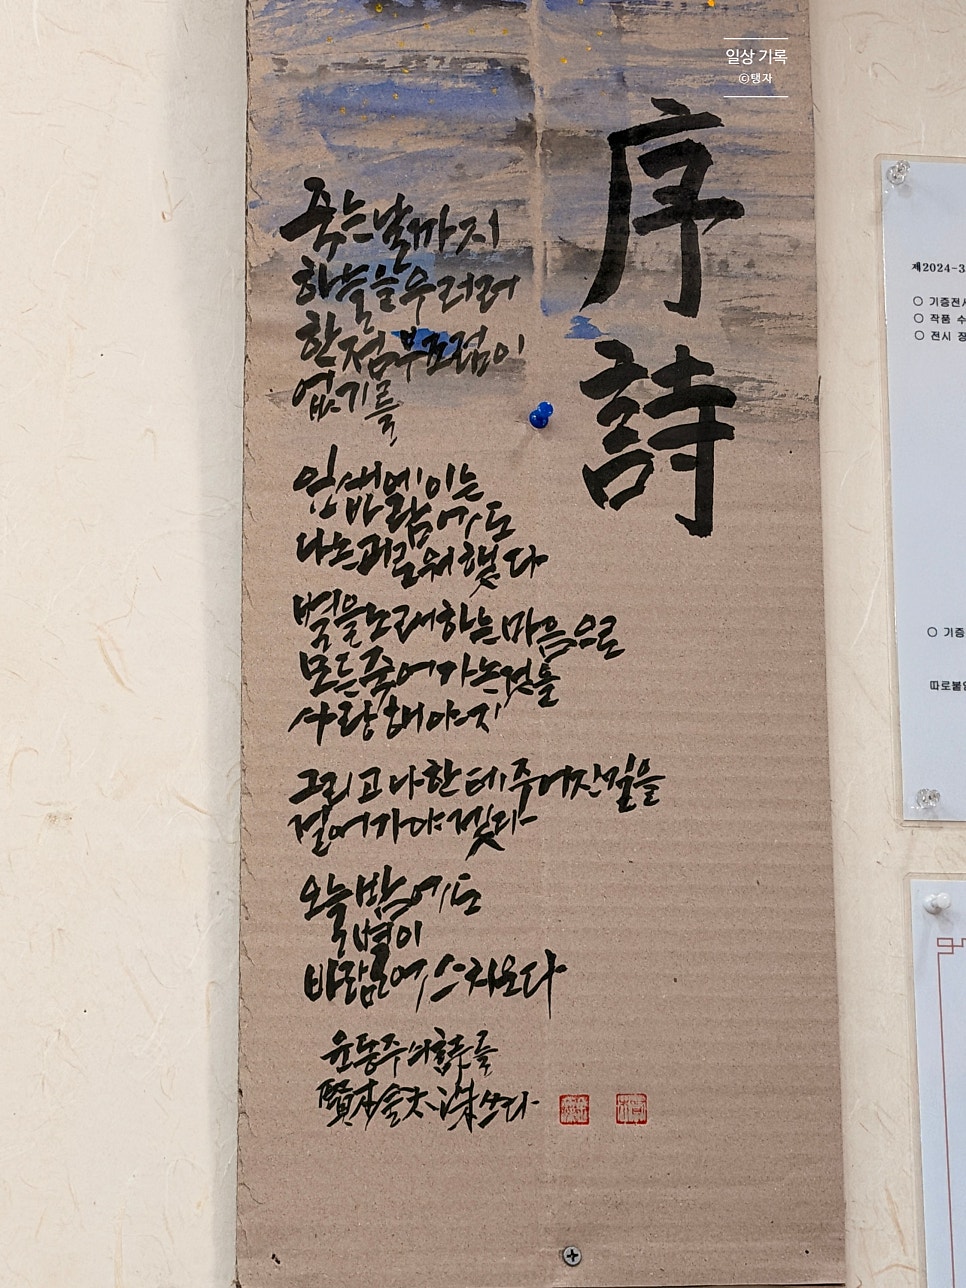 일상 기록
©탱자
序詩
죽는날까지
하늘을우러러
한점부끄럼이
없기를
잎새에이는
바람에도
나는괴로워했다
별을노래하는마음으로
모든죽어가는것을
사랑해야지
그리고나한테주어진길을
걸어가야겠다
오늘밤에도
별이
바람에스치운다
윤동주의詩를
쓰다
제2024-3
○ 기증전
○ 작품 수
○ 전시
○ 기증
따로붙